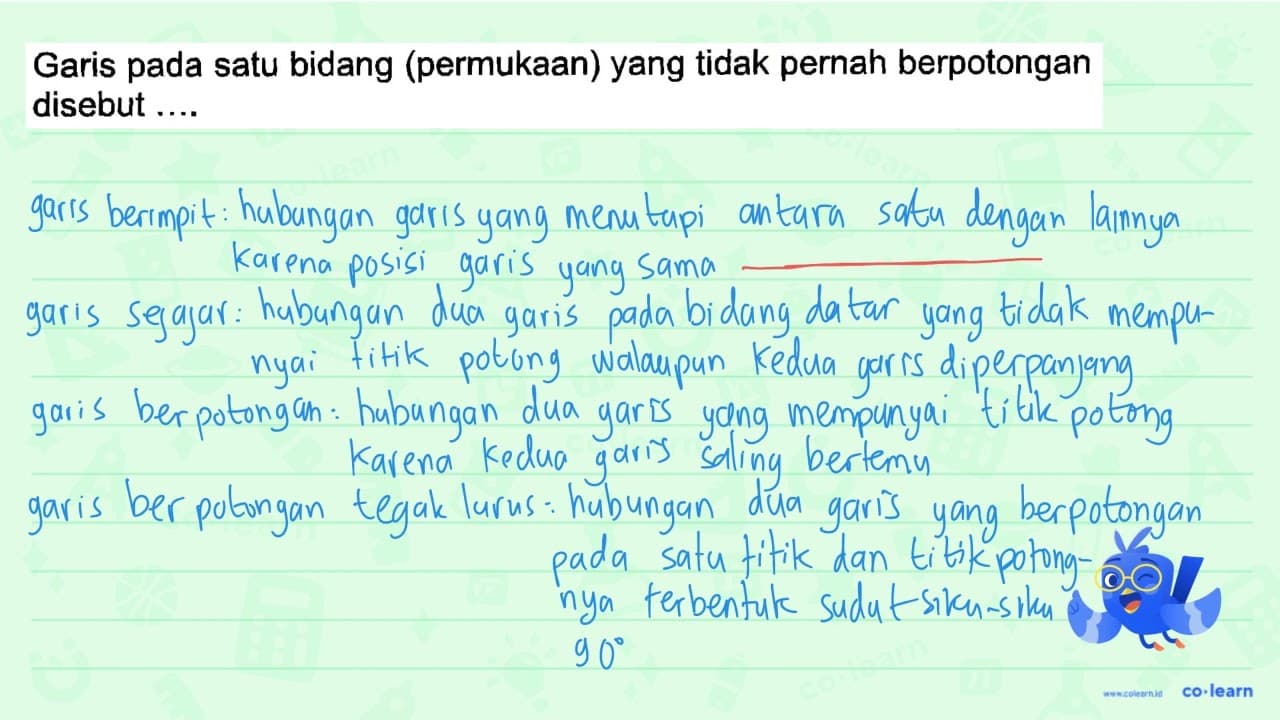 Garis pada satu bidang (permukaan) yang tidak pernah berpotongan
disebut ....
garis berimpit: hubungan garis yang menutupi antara satu dengan lainnya
karena posisi garis yang sama
garis sejajar: hubungan dua garis pada bidang datar yang tidak mempu-
nyai titik potong walaupun kedua garis diperpanjang
garis berpotongan: hubungan dua garis yang mempunyai titik potong
karena kedua garis saling bertemu
garis berpotongan tegak lurus: hubungan dua garis yang berpotongan
pada satu titik dan titik potong-
nya terbentuk sudut siku-siku
90°
www.colearn.id co·learn